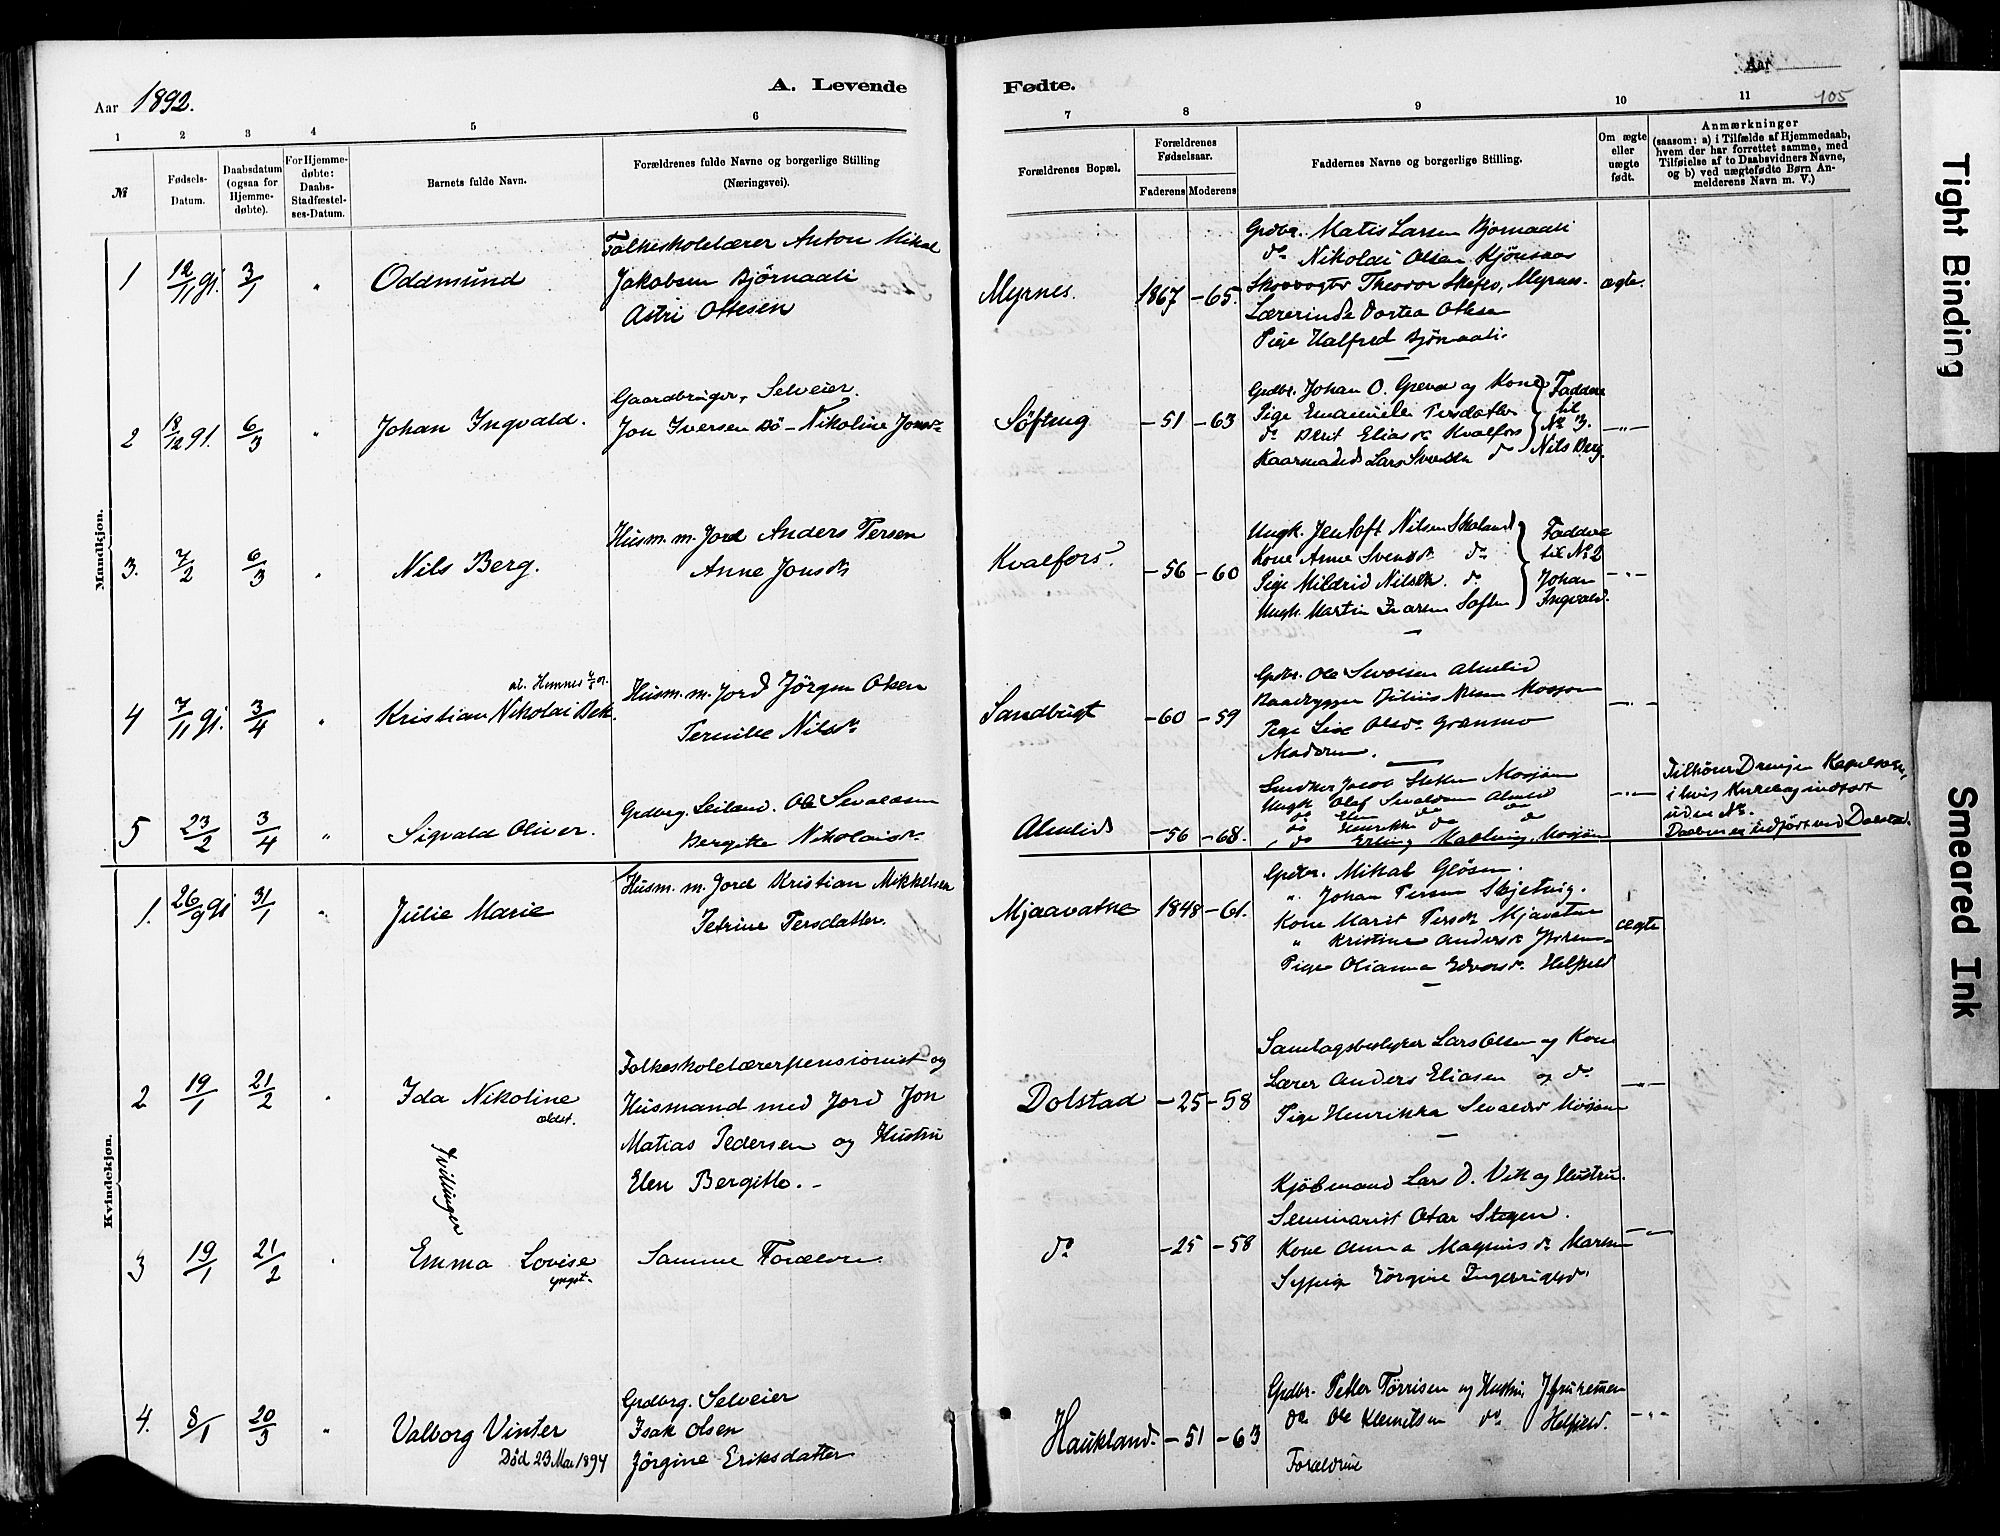 Aar 1892.
A. Levende
Fødte.
Aar
105
1 2 3 4 5 6 7 8 9 10 11
№
Fødsels-
Datum.
Daabsdatum
(ogsaa for
Hjemme-
døbte).
For Hjemme-
døbte:
Daabs-
Stadfæstel-
ses-Datum.
Barnets fulde Navn.
Forældrenes fulde Navne og borgerlige Stilling
(Næringsvei).
Forældrenes Bopæl.
Forældrenes
Fødselsaar.
Faderens Moderens
Faddernes Navne og borgerlige Stilling.
Om ægte
eller
uægte
født.
Anmærkninger
(saasom: a) i Tilfælde af Hjemmedaab,
hvem der har forrettet samme, med
Tilføielse af to Daabsvidners Navne,
og b) ved uægtefødte Børn An-
melderens Navn m. V.)
Mandkjøn.
1 12/11 gj. 3/1 " Oddmund
Folkeskolelærer Anton Mikal
Jakobsen Bjørnaali
Astri Ottesen
Myrnes. 1867 -65.
Grdbr. Matis Larsen Bjørnaali
do Nikolai Olsen Kjønsaas
Skovvogter Theodor Myrnes.
Lærerinde Dortea Olsen
Pige Halfred Bjørnaali.
ægte.
2 18/12 gl. 6/3 " Johan Ingvald.
Gaardbruger, Selveier.
Jon Iversen Bø - Nikoline Jonsd.
Søftug -51 -63
Grdbr. Johan O. Greva og Kone
Pige Emanuele Persdatter
do Berit Elias d. Kvalfors
Lars Svendsen do
Faddere
til
№ 3.
Nils Berg.
3. 7/2 6/3 " Nils Berg.
Husm. m. Jord Anders Persen
Anne Jonsd.
Kvalfors. -56 -60
Ungk. Jentoft Nilsen Skaland
Kone Anne Svendsd. do
Pige Mildrid Nilsd. do
Ungk. Martin Ivarsen Søften
Faddere
til № 2
Johan
Ingvald.
4 7/11 gj. 3/4 " Kristian Nikolai Bek.
Husm. m. Jord Jørgen Olsen
Pernille Nilsd.
Sandbugt -60 -59
Grdbr. Ole Sivalsen Almlid
Baadbygger Julius Nilsen Mosjøen
Pige Lise Olsd. Grannmo
Moderen.
5 23/2 3/4 " Sigvald Oliver.
Grdbrg. Leiland. Ole Sevaldsen
Bergitte Nikolaisd.
Almlid -56 -68.
Smedker Jacob Mosjøen
Ungk. Olaf Sevaldsen Almlid
do Elen do do
do Henrikke do do
do Erling Mosjøen
Tilhører Drevjen Kapelsogn,
i hvis Kirkebog indført
uden №.
Daaben er udført ved Dolstad.
Kvindekjøn.
1. 26/9 gj 31/1 " Julie Marie
Husm. m. Jord Kristian Mikkelsen
Petrine Persdatter.
Mjaavatne 1848 -61.
Grdbr. Mikal Gløsen.
" Johan Persen Skjetvig.
Kone Marit Persd. Mjavatne
" Kristine Andersd.
Pige Olianna Edvardsd. Helfjeld
ægte
2 19/1 21/2 " Ida Nikoline
ældst.
Folkeskolelærerpensionist og
Husmand med Jord Jon
Matias Pedersen og Hustru
Elen Bergitte. -
Dolstad -25 -58
Samlagsbestyrer Lars Olsen og Kone
Lærer Anders Eliasen og do
Pige Henrikka Sevaldsd. Mosjøen
Tvillinger
3 19/1 21/2 " Emma Lovise
yngst.
Samme Forældre.
do -25 -58
Kjøbmand Lars D. Vik og Hustru.
Seminarist Otar Stegen.
Kone Anna Magnus d.
Sypige Jørgine
4. 8/1 20/3 " Valborg Vinter
Død 23 Mai 1894
Grdbrg. Selveier
Isak Olsen
Jørgine Eriksdatter
Haukland. -51 -63
Grdbr. Petter Tørrisen og Hustru
do Ole Klemetsen do Helfjeld.
Forældrene
Tight Binding
Smeared Ink